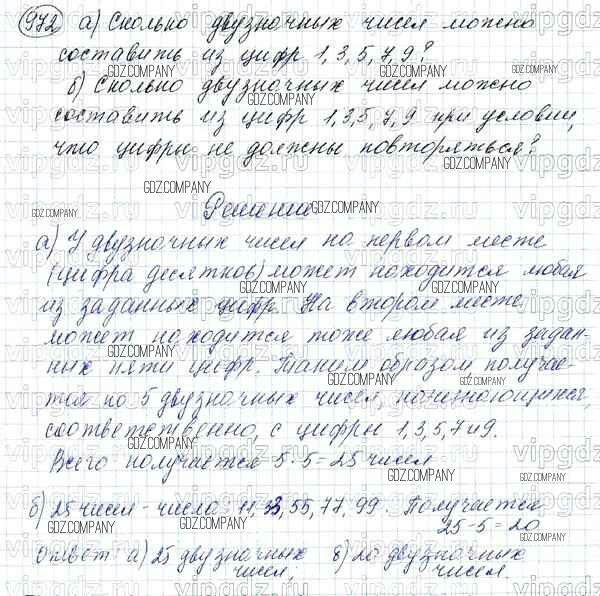 972 а) Сколько двузначных чисел можно
составить из цифр 1,3,5,7,9?
б) Сколько двузначных чисел можно
составить из цифр 1,3,5,7,9 при условии,
что цифры не должны повторяться?
Решение
а) У двузначных чисел на первом месте
(цифра десятков) может находится любая
из заданных цифр. На втором месте
может находится тоже любая из задан-
ных пяти цифр. Таким образом получае-
тся по 5 двузначных чисел, начинающихся,
соответственно, с цифры 1,3,5,7 и 9.
Всего получается 5·5=25 чисел
б) 25 чисел - числа 11, 33, 55, 77, 99. Получается
25-5=20
Ответ: а) 25 двузначных б) 20 двузначных
чисел; чисел.